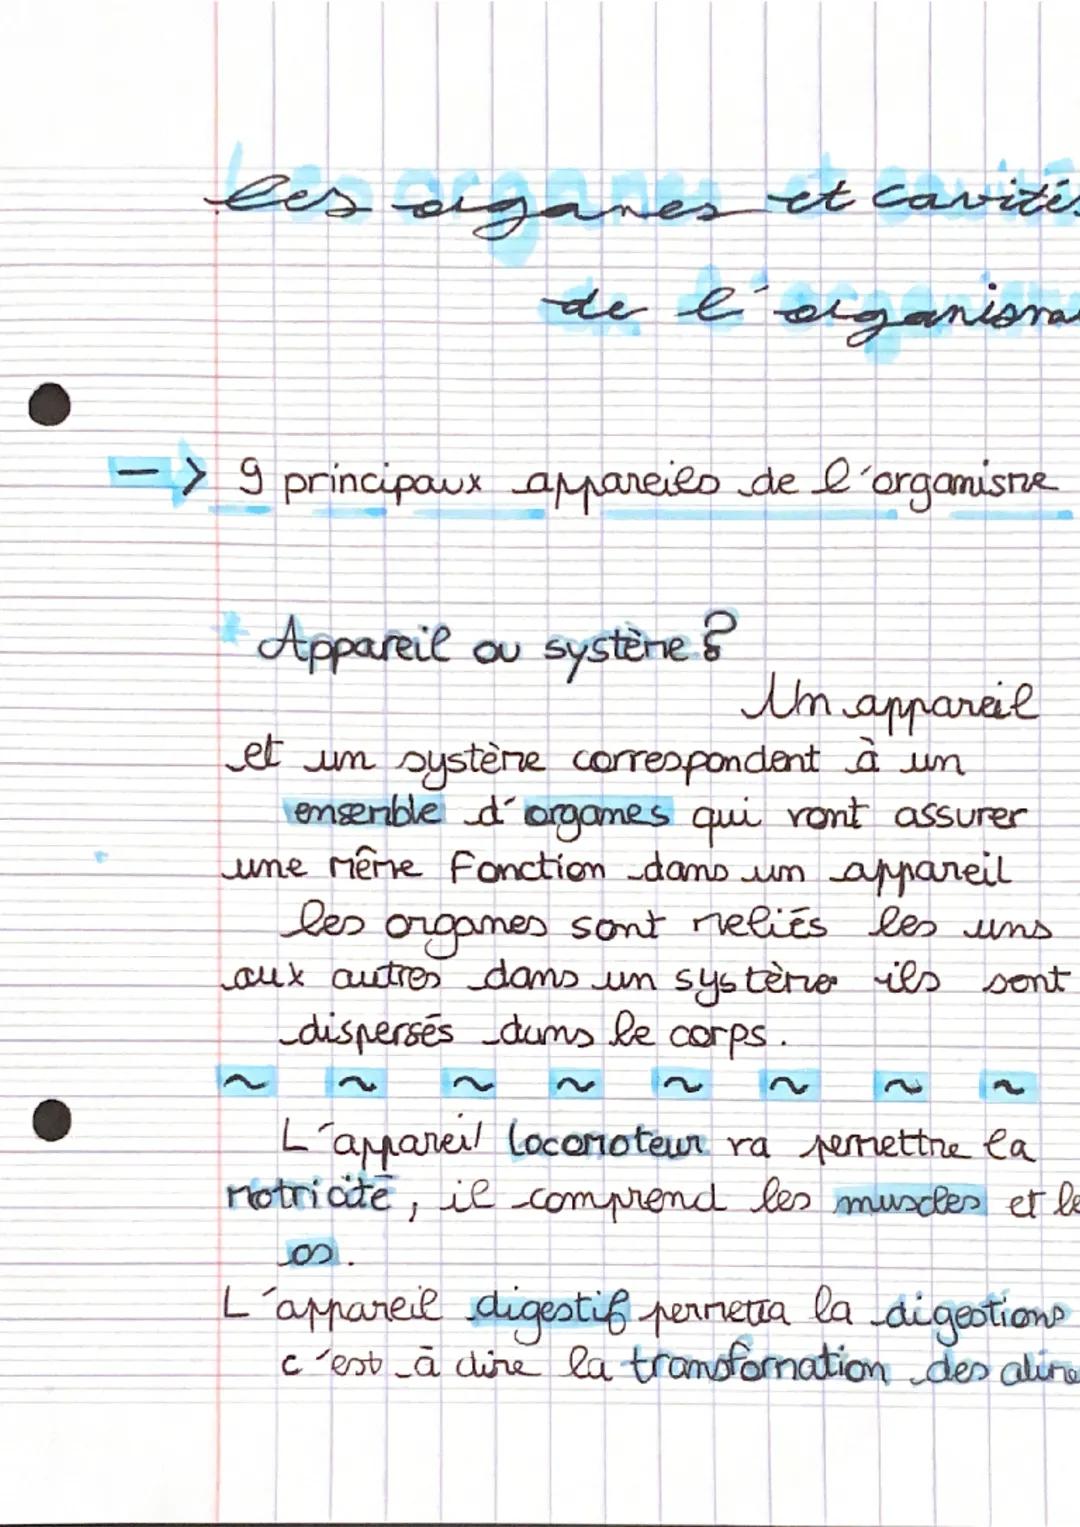 Les organes et cavités
de l'organisme
—> 9 principaux appareils de l'organisme
* Appareil ou système ?
Un appareil
et un système correspondent à un
ensemble d'organes qui vont assurer
une même fonction dans un appareil
les organes sont reliés les uns
aux autres dans un système ils sont
dispersés dans le corps.
~ ~ ~ ~ ~ ~ ~ ~
L'appareil locomoteur va permettre la
motricité, il comprend les muscles et le
os.
L'appareil digestif permettra la digestions
c'est à dire la transformation des alime